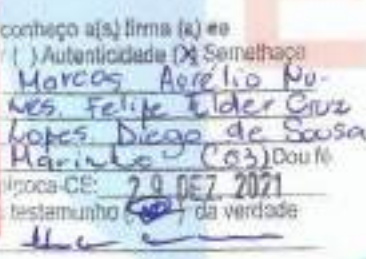 conheço a(s) firma (s) ee
( ) Autenticidade (X) Semelhaça
Marcos Aurélio Nu-
nes. Felipe Elder Cruz
Lopes Diego de Sousa
Marinho (03) Dou fé
pipoca-CE: 29 DEZ. 2021
testemunho ( ) da verdade